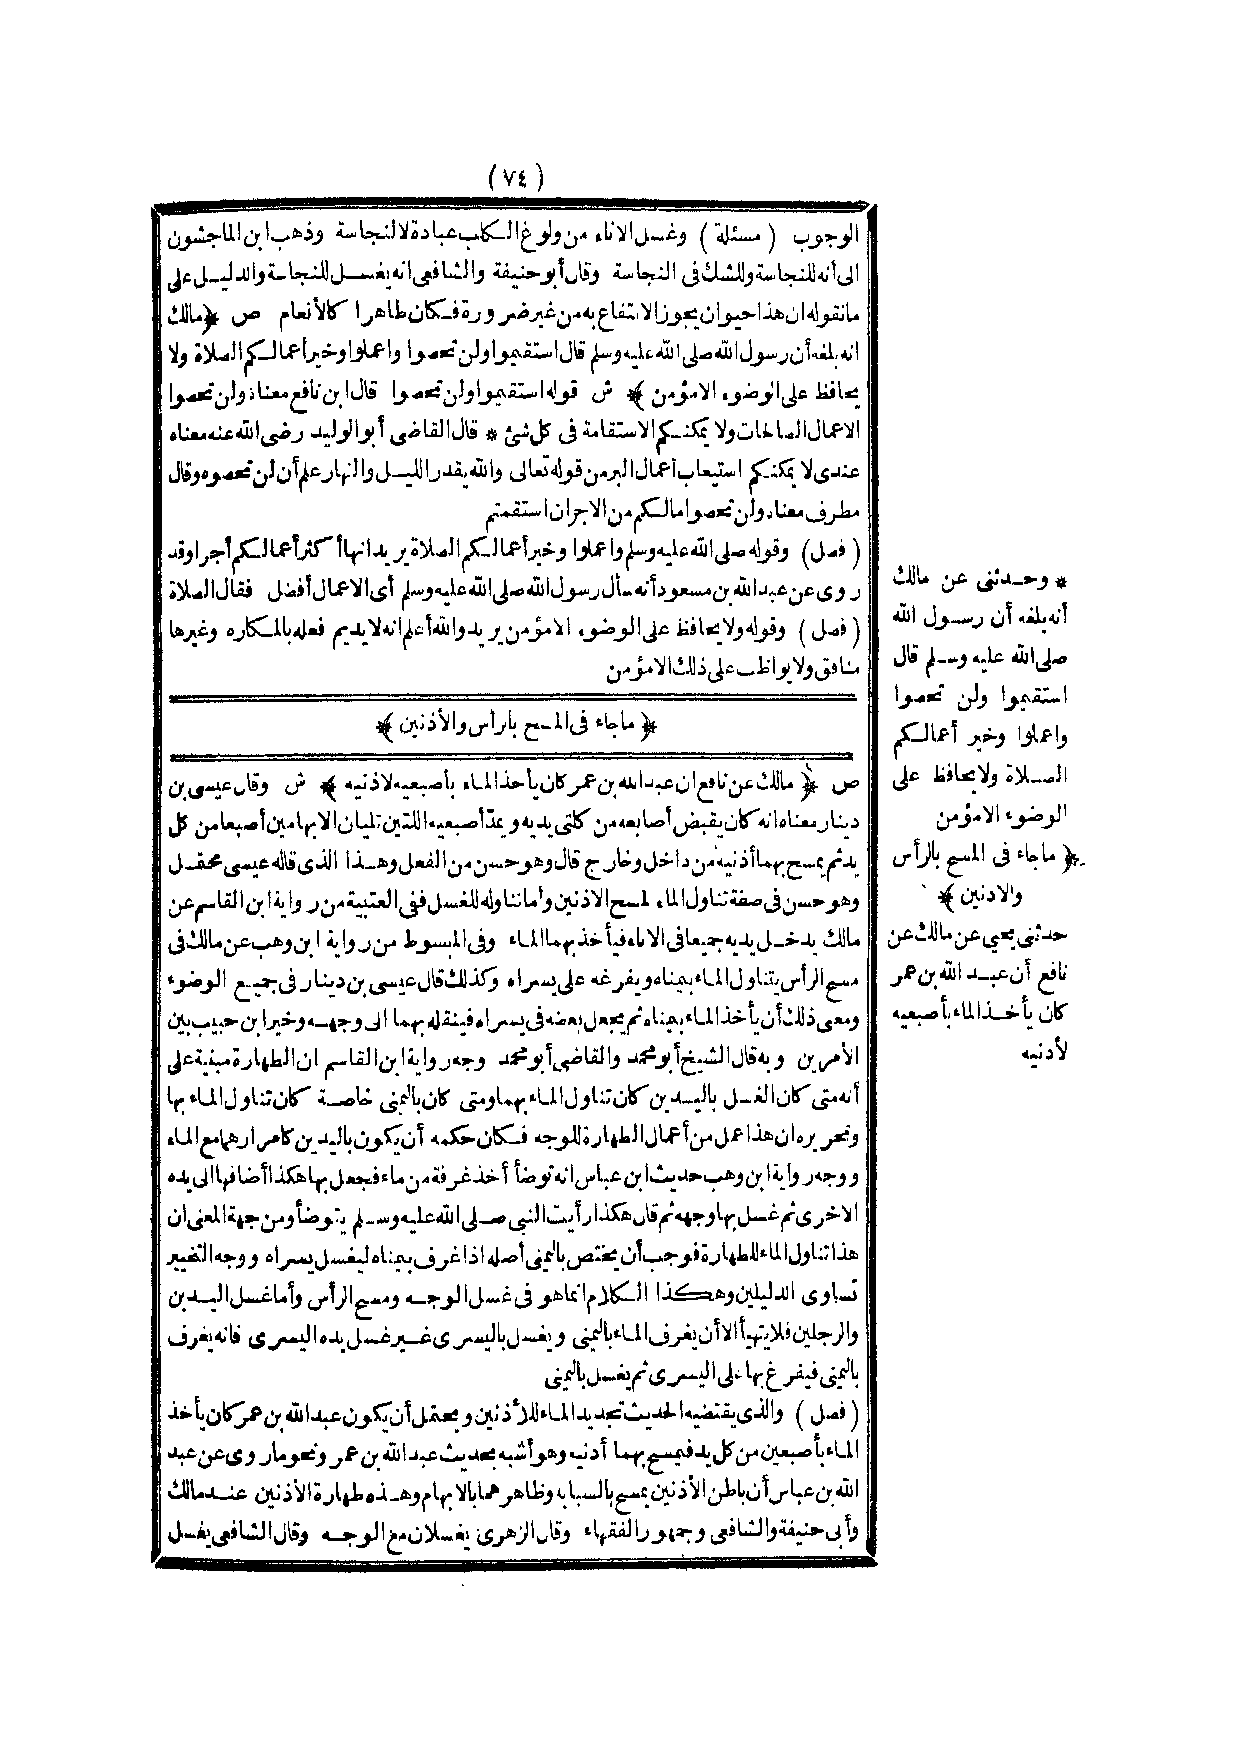 (٧٤)
الوجوب (مسئلة) وغسل الاناء من ولوغ الكلب عبادة لا لنجاسة وذهب ابن الماجشون
الى أنه للنجاسة وللشك فى النجاسة وقال أبو حنيفة والشافعى انه يغسل للنجاسة والدليل على
مانقوله ان هذا حيوان يجوز الانتفاع به من غير ضرورة فكان طاهرا كالأنعام ص ﴿ مالك
انه بلغه أن رسول الله صلى الله عليه وسلم قال استقيموا ولن تحصوا واعملوا وخير أعمالكم الصلاة ولا
يحافظ على الوضوء الامؤمن ﴾ ش قوله استقيموا ولن تحصوا قال ابن نافع معناه ولن تحصوا
الاعمال الصالحات ولا يمكنكم الاستقامة فى كل شئ * قال القاضى أبو الوليد رضى الله عنه معناه
عندى لا يمكنكم استيعاب أعمال البر من قوله تعالى والله يقدر الليل والنهار علم أن لن تحصوه وقال
مطرف معناه ولن تحصوا مالكم من الاجر ان استقمتم
(فصل) وقوله صلى الله عليه وسلم واعملوا وخير أعمالكم الصلاة يريد انها أكثر أعمالكم أجرا وقد
روى عن عبد الله بن مسعود أنه سأل رسول الله صلى الله عليه وسلم أى الاعمال أفضل فقال الصلاة
(فصل) وقوله ولا يحافظ على الوضوء الامؤمن يريد والله أعلم انه لا يديم فعله بالمكاره وغيرها
منافق ولا يواظب على ذلك الامؤمن
﴿ ماجاء فى المسح بالرأس والأذنين ﴾
ص ﴿ مالك عن نافع ان عبد الله بن عمر كان يأخذ الماء بأصبعيه لاذنيه ﴾ ش وقال عيسى بن
دينار معناه انه كان يقبض أصابعه من كلتى يديه ويمد أصبعيه اللتين تليان الابهامين أصبعا من كل
يد ثم يمسح بهما أذنيه من داخل وخارج قال وهو حسن من الفعل وهذا الذى قاله عيسى محتمل
وهو حسن فى صفة تناول الماء لمسح الاذنين وأما تناوله للغسل ففى العتبية من رواية ابن القاسم عن
مالك يدخل يديه جميعا فى الاناء فيأخذ بهما الماء وفى المبسوط من رواية ابن وهب عن مالك فى
مسح الرأس يتناول الماء بيمناه ويفرغه على يسراه وكذلك قال عيسى بن دينار فى جميع الوضوء
ومعنى ذلك أن يأخذ الماء بيمناه ثم يجعل بعضه فى يسراه فينقله بهما الى وجهه وخير ابن حبيب بين
الأمرين وبه قال الشيخ أبو محمد والقاضى أبو محمد وجه رواية ابن القاسم ان الطهارة مبنية على
أنه متى كان الغسل باليدين كان تناول الماء بهما ومتى كان باليمنى خاصة كان تناول الماء بها
وتحريره ان هذا عمل من أعمال الطهارة للوجه فكان حكمه أن يكون باليدين كامرارهما مع الماء
ووجه رواية ابن وهب حديث ابن عباس انه توضأ أخذ غرفة من ماء فجعل بها هكذا أضافها الى يده
الاخرى ثم غسل بها وجهه ثم قال هكذا رأيت النبى صلى الله عليه وسلم يتوضأ ومن جهة المعنى ان
هذا تناول الماء للطهارة فوجب أن يختص باليمنى أصله اذا غرف بيمناه ليغسل يسراه ووجه التخيير
تساوى الدليلين وهكذا الكلام انما هو فى غسل الوجه ومسح الرأس وأما غسل اليدين
والرجلين فلا يتهيأ الا أن يغرف الماء باليمنى ويغسل باليسرى غير غسل يده اليسرى فانه يغرف
باليمنى فيفرغ بها على اليسرى ثم يغسل باليمنى
(فصل) والذى يقتضيه الحديث تجديد الماء للأذنين ويحتمل أن يكون عبد الله بن عمر كان يأخذ
الماء بأصبعين من كل يد فيمسح بهما أذنيه وهو أشبه بحديث عبد الله بن عمر ونحو ما روى عن عبد
الله بن عباس أن باطن الأذنين يمسح بالسبابه وظاهرهما بالابهام وهذه طهارة الأذنين عند مالك
وأبى حنيفة والشافعى وجمهور الفقهاء وقال الزهرى يغسلان مع الوجه وقال الشافعى يغسل
* وحدثنى عن مالك
أنه بلغه أن رسول الله
صلى الله عليه وسلم قال
استقيموا ولن تحصوا
واعملوا وخير أعمالكم
الصلاة ولا يحافظ على
الوضوء الامؤمن
﴿ ماجاء فى المسح بالرأس
والاذنين ﴾
حدثنى يحيى عن مالك عن
نافع أن عبد الله بن عمر
كان يأخذ الماء بأصبعيه
لأذنيه